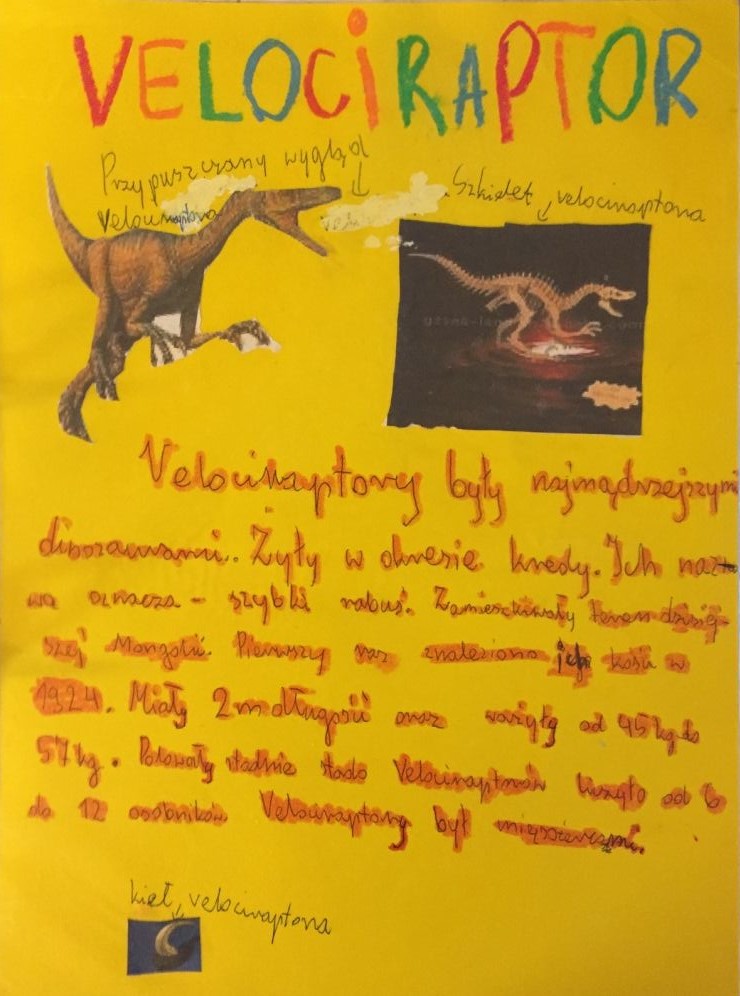 VELOCIRAPTOR
Przypuszczany wygląd
Velociraptora
Szkielet velociraptora
Velociraptory były najmądrzejszymi
dinozaurami. Żyły w okresie kredy. Ich naz-
wa oznacza - szybki rabuś. Zamieszkiwały teren dzisiej-
szej Mongolii. Pierwszy raz znaleziono ich kości w
1924. Miały 2m długości oraz ważyły od 45 kg do
57 kg. Polowały stadnie stado Velociraptorów liczyło od 6
do 12 osobników. Velociraptory był mięsożercami.
kieł velociraptora